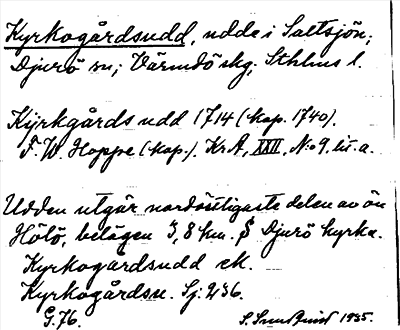 Kyrkogårdsudd, udde i Saltsjön;
Djurö sn; Värmdö skg; Sthlms l.
Kyrkgårds udd 1714 (kop. 1740).
F. W. Hoppe (kop.). KrA, XXII, N:o 9, lit. a.
Udden utgår nordöstligaste delen av ön
Hölö, belägen 3,8 km. S Djurö kyrka.
Kyrkogårdsudd ek.
Kyrkogårdsu. Sj. 2/36.
G. 76. S. 1935.